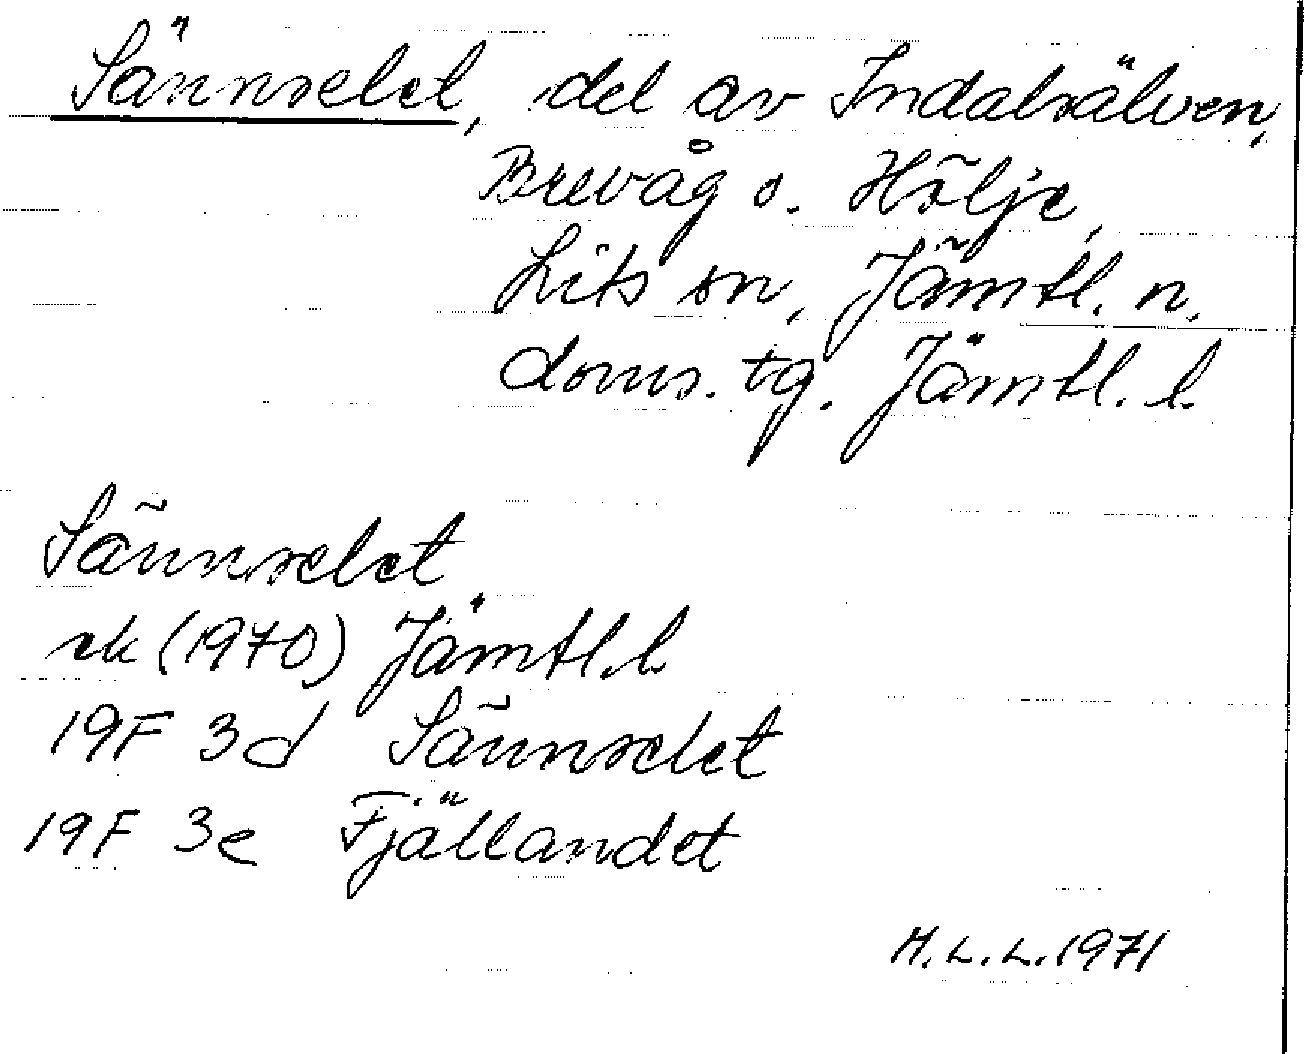 Sännselet, del av Indalsälven,
Brevåg o. Hölje,
Lits sn, Jämtl. n.
doms. tg. Jämtl. l.
Sännselet
ek (1970) Jämtl. l.
19F 3d Sännselet
19F 3e Fjällandet
M.L.L. 1971